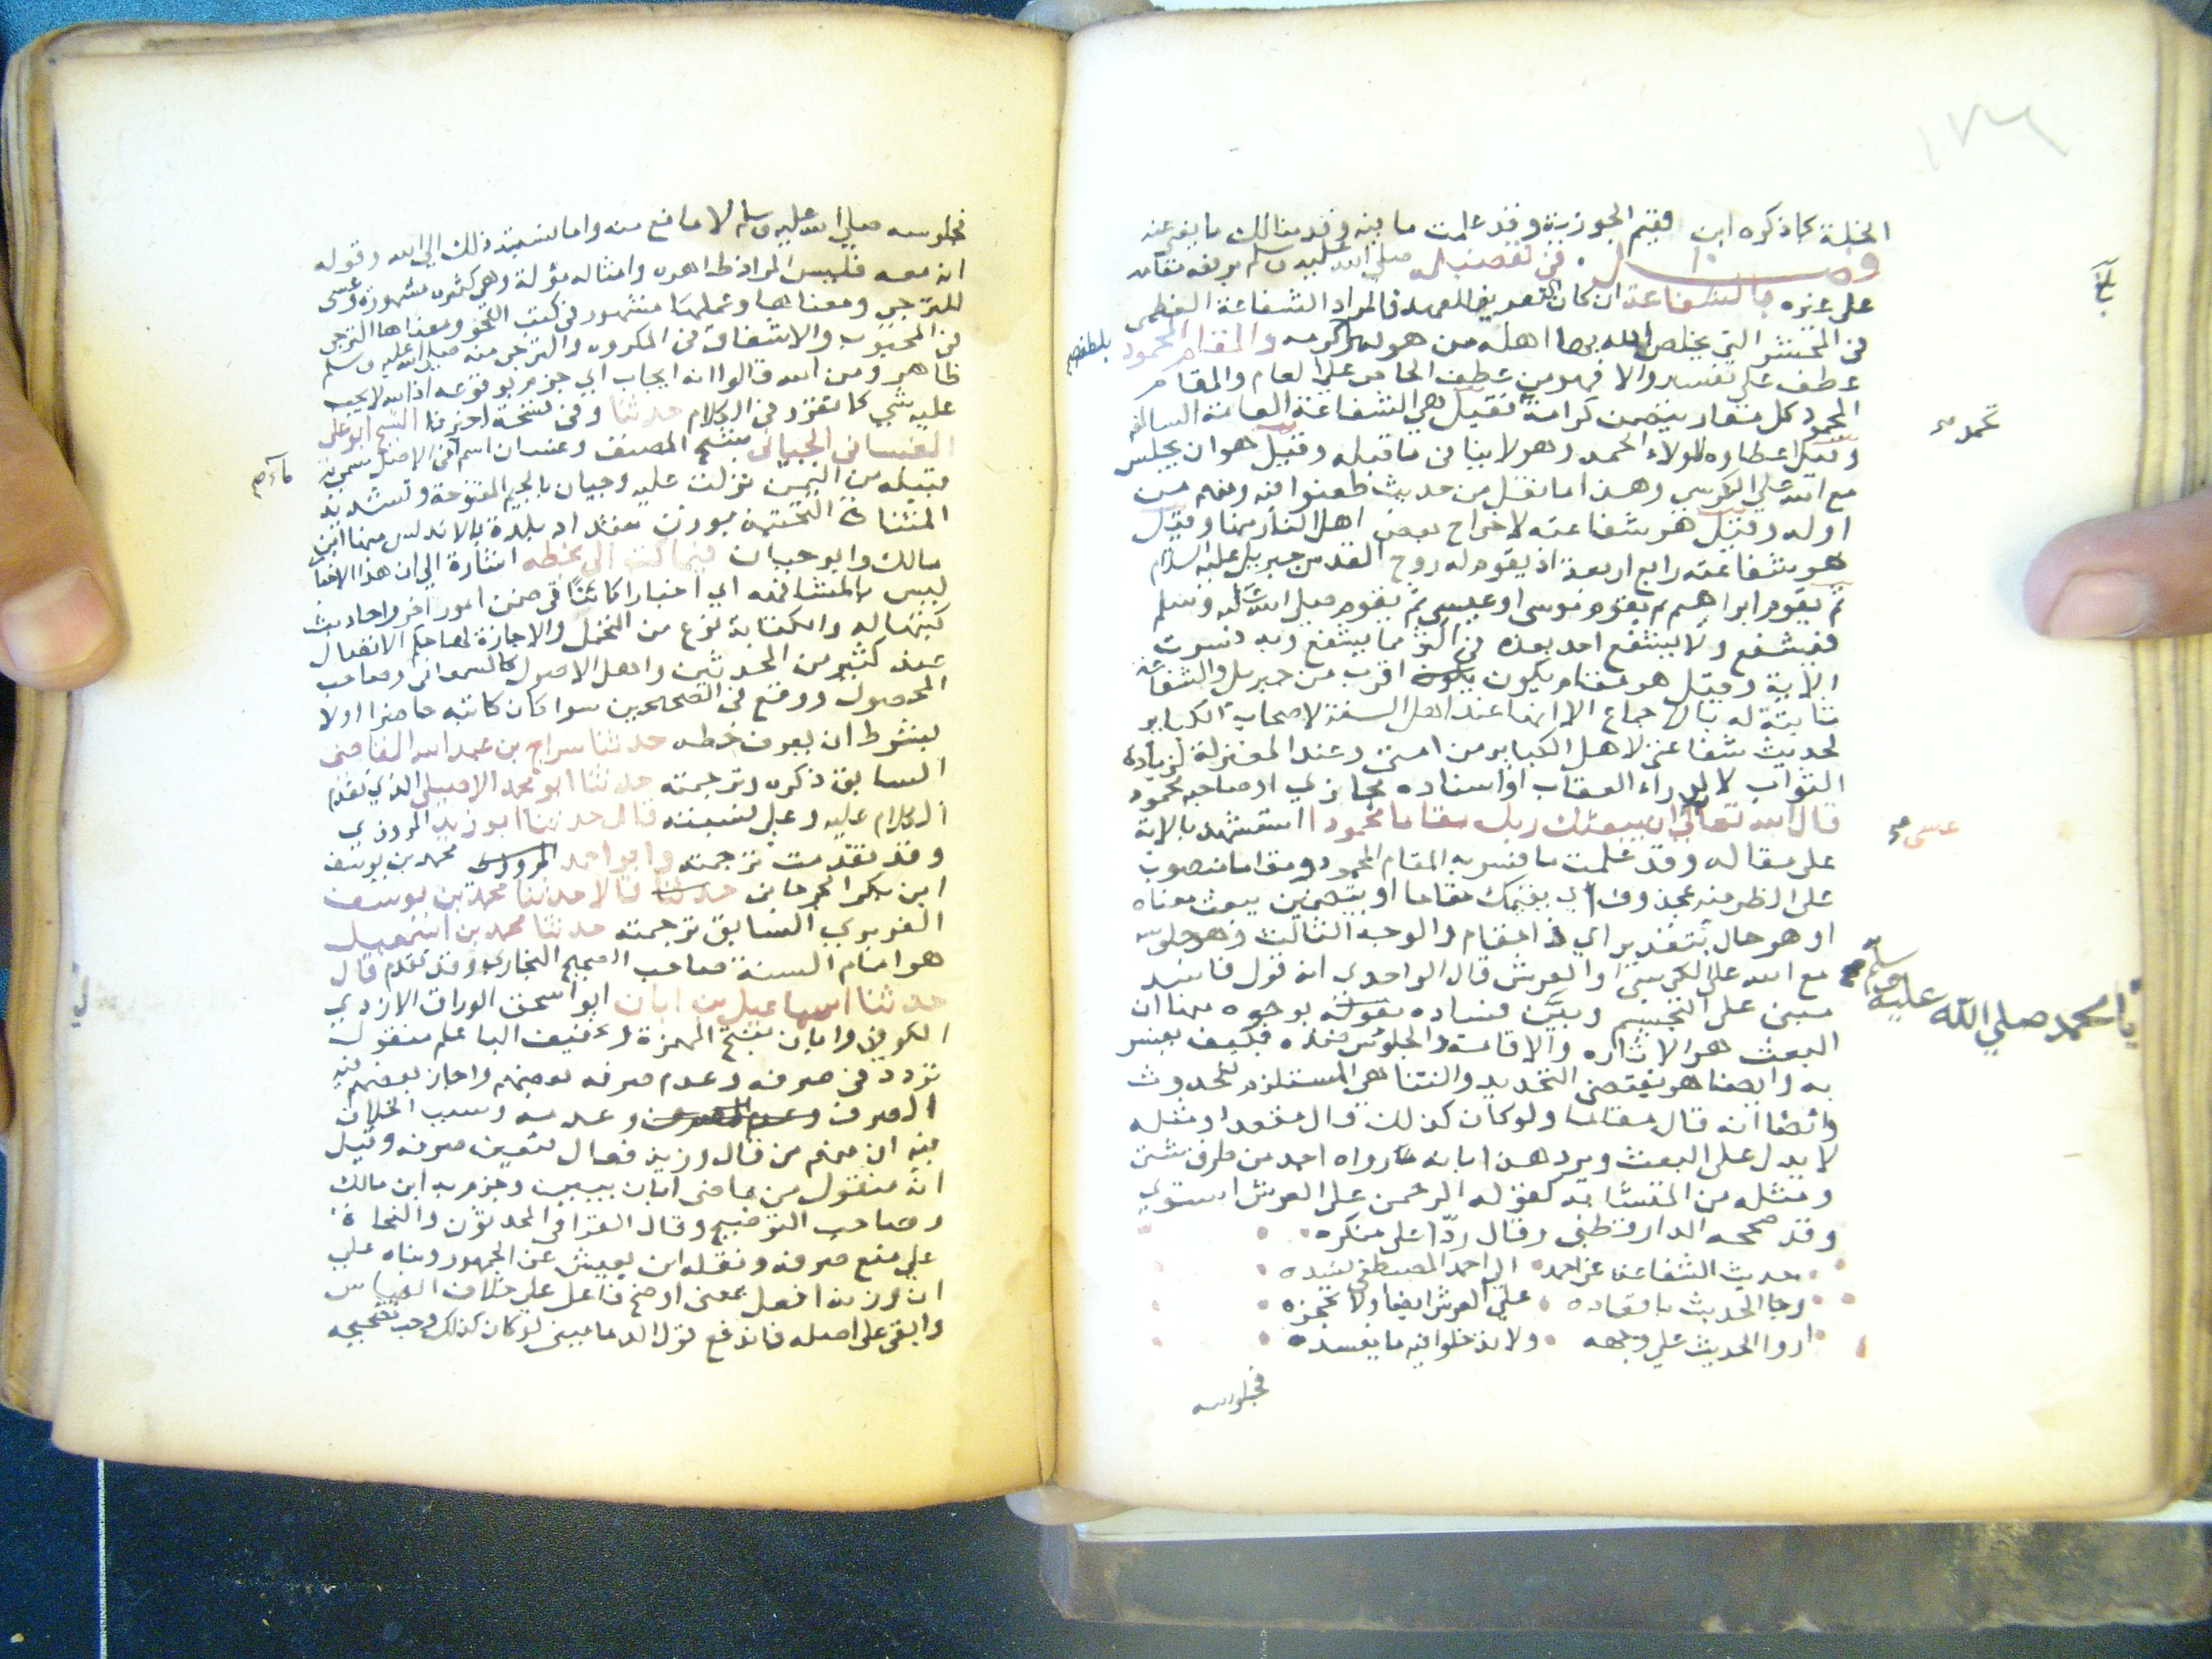 ١٧٦
الخلة كما ذكره ابن قيم الجوزية وقد علمت ما فيه وقد منالك ما يغني عنه
فصل . في تفضيله صلى الله عليه وسلم برفعه مقامه
على غيره بالشفاعة ان كان التعريف للعهد فالمراد الشفاعة العظمى
في المحشر التي يخلص الله بها اهله من هوله وكربه والمقام المحمود
عطف على تفسير والا فهو من عطف الخاص على العام والمقام
المحمود كل مقام يتضمن كرامة فقيل هي الشفاعة العامة السالفة
وقيل اعطاوه لولاء الحمد وهو لا ينافى ما قبله وقيل هو ان يجلس
مع الله على الكرسي وهذا ما نقل من حديث طعنوا فيه ومنهم من
اوله وقيل هو شفاعته لاخراج بعض اهل النار منها وقيل
هو شفاعته رابع اربعة اذ يقوم له روح القدس جبريل عليه السلام
ثم يقوم ابراهيم ثم يقوم موسى او عيسى ثم يقوم صلى الله عليه وسلم
فيشفع ولا يشفع احد بعده في اكثر مما يشفع وبه فسرت
الاية وقيل هو مقام يكون يكون اقرب من جبريل والشفاعة
ثابتة له بالاجماع الا انها عند اهل السنة لاصحاب الكبائر
لحديث شفاعتي لاهل الكبائر من امتي وعند المعتزلة لزيادة
الثواب لا لدراء العقاب واسناده مجازي او صاحبه محمود
قال الله تعالى ان يبعثك ربك مقاما محمودا استشهد بالاية
على مقاله وقد علمت ما فسر به المقام المحمود ومقاما منصوب
على الظرفية بمحذوف اي يقيمك مقاما او بتضمين يبعث معناه
او هو حال بتقدير اي ذا مقام والوجه الثالث وهو جلوسه
مع الله على الكرسي او العرش قال الواحدي انه قول فاسد
مبني على التجسيم وبين فساده بقوله بوجوه منها ان
البعث هو الاثاره والاقامة والجلوس ضده فكيف يفسر
به وايضا هو يقتضي التحديد والتناهي المستلزم للحدوث
وايضا انه قال مقاما ولو كان كذلك قال مقعدا ومثله
لا يدل على البعث ويرد هذا بانه رواه احمد من طرق شتى
ومثله من المتشابه كقوله الرحمن على العرش استوى
وقد صححه الدارقطني وقال ردّا على منكره
حديث الشفاعة عن احمد الى احمد المصطفى نسنده
وجا الحديث باقعاده على العرش ايضا ولا نجحده
امروا الحديث على وجهه ولا تدخلوا فيه ما يفسده
فجلوسه
عسى
يا محمد صلي الله عليه وسلم
فجلوسه صلى الله عليه وسلم لا مانع منه واما نسبته ذلك الى الله وقوله
انه معه فليس المراد ظاهره وامثاله مؤلة وهي كثيره مشهورة وعسى
للترجي ومعناها وعملها مشهور في كتب النحو ومعناها الترجي
في المحبوب والاشفاق في المكروه والترجي منه صلى الله عليه وسلم
ظاهر ومن الله قالوا انه ايجاب اي جزم بوقوعه اذ الله لا يجب
عليه شي كما تقرر في الكلام حدثنا وفي نسخة اخبرنا الشيخ ابو على
الغساني الجياني شيخ المصنف وغسان اسم ماء في الاصل سمي به
قبيله من اليمن نزلت عليه وجيان بالجيم المفتوحة وتشديد
المثناة التحتية بوزن شداد بلدة بالاندلس منها ابن
مالك وابو حيان فيما كتبه الي بخطه اشارة الى ان هذا الاخبار
ليس بالمشافهة اي اخبارا كائنا في ضمن امور اخر واحاديث
كتبها له والكتابة نوع من التحمل والاجازة لها حكم الاتصال
عند كثير من المحدثين واهل الاصول كالسمعاني وصاحب
المحصول ووقع في الصحيحين سوا كان كاتبه حاضرا اولا
بشرط ان يعرف خطه حدثنا سراج بن عبد الله القاضي
السابق ذكره وترجمته حدثنا ابو محمد الاصيلي الذي تقدم
الكلام عليه وعلى نسبته قال حدثنا ابو زيد المروزي
وقد تقدمت ترجمته وابو احمد المروزى محمد بن يوسف
ابن بكر الجرجاني حدثنا قالا حدثنا محمد بن يوسف
الفربري السابق ترجمته حدثنا محمد بن اسمعيل
هو امام السنة صاحب الصحيح البخاري وقد تقدم قال
حدثنا اسماعيل بن ابان ابو اسحق الوراق الازدي
الكوفي وابان بفتح الهمزة وتخفيف البا علم منقول
تردد في صرفه وعدم صرفه بعضهم واجاز بعضهم فيه
الصرف وعدم الصرف وعدمه وسبب الخلاف
فيه ان منهم من قال وزنه فعال فتعين صرفه وقيل
انه منقول من ماضي ابان يبين وجزم به ابن مالك
وصاحب التوضيح وقال القرافي المحدثون والنحاة
على منع صرفه ونقله ابن يعيش عن الجمهور وبناه على
ان وزنه افعل بمعنى اوضح فاعل على خلاف القياس
وابقى على اصله فاندفع قول الدماميني لو كان كذلك وجب تصحيحه